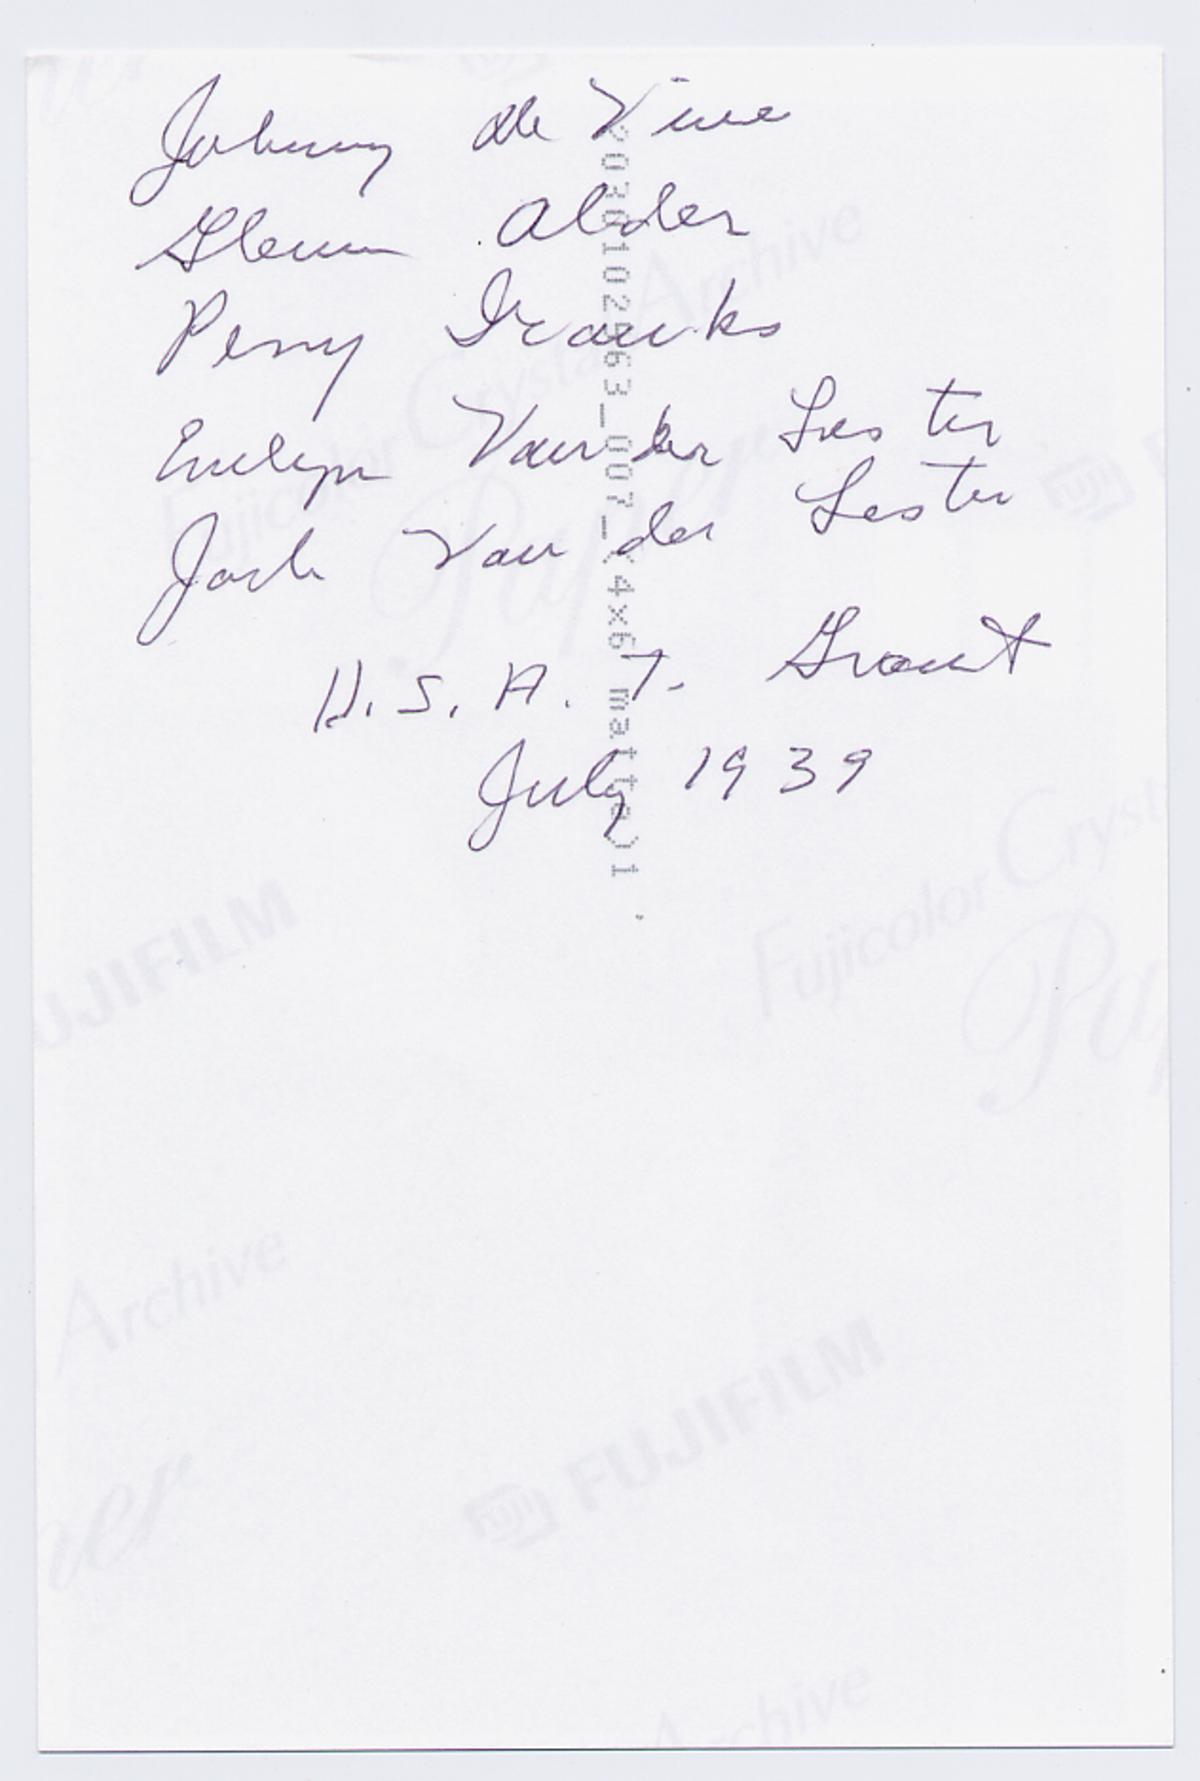 Johnny de Vine
Glenn Alder
Perry Franks
Evelyn Van der Lester
Jack Van der Lester
U.S.A.T. Grant
July 1939
2030102563_007_(4x6 matte)1
Fujicolor Crystal Archive
Paper
FUJI
FUJIFILM
Fujicolor Cryst
Pap
Archive
per
FUJI FUJIFILM
Archive